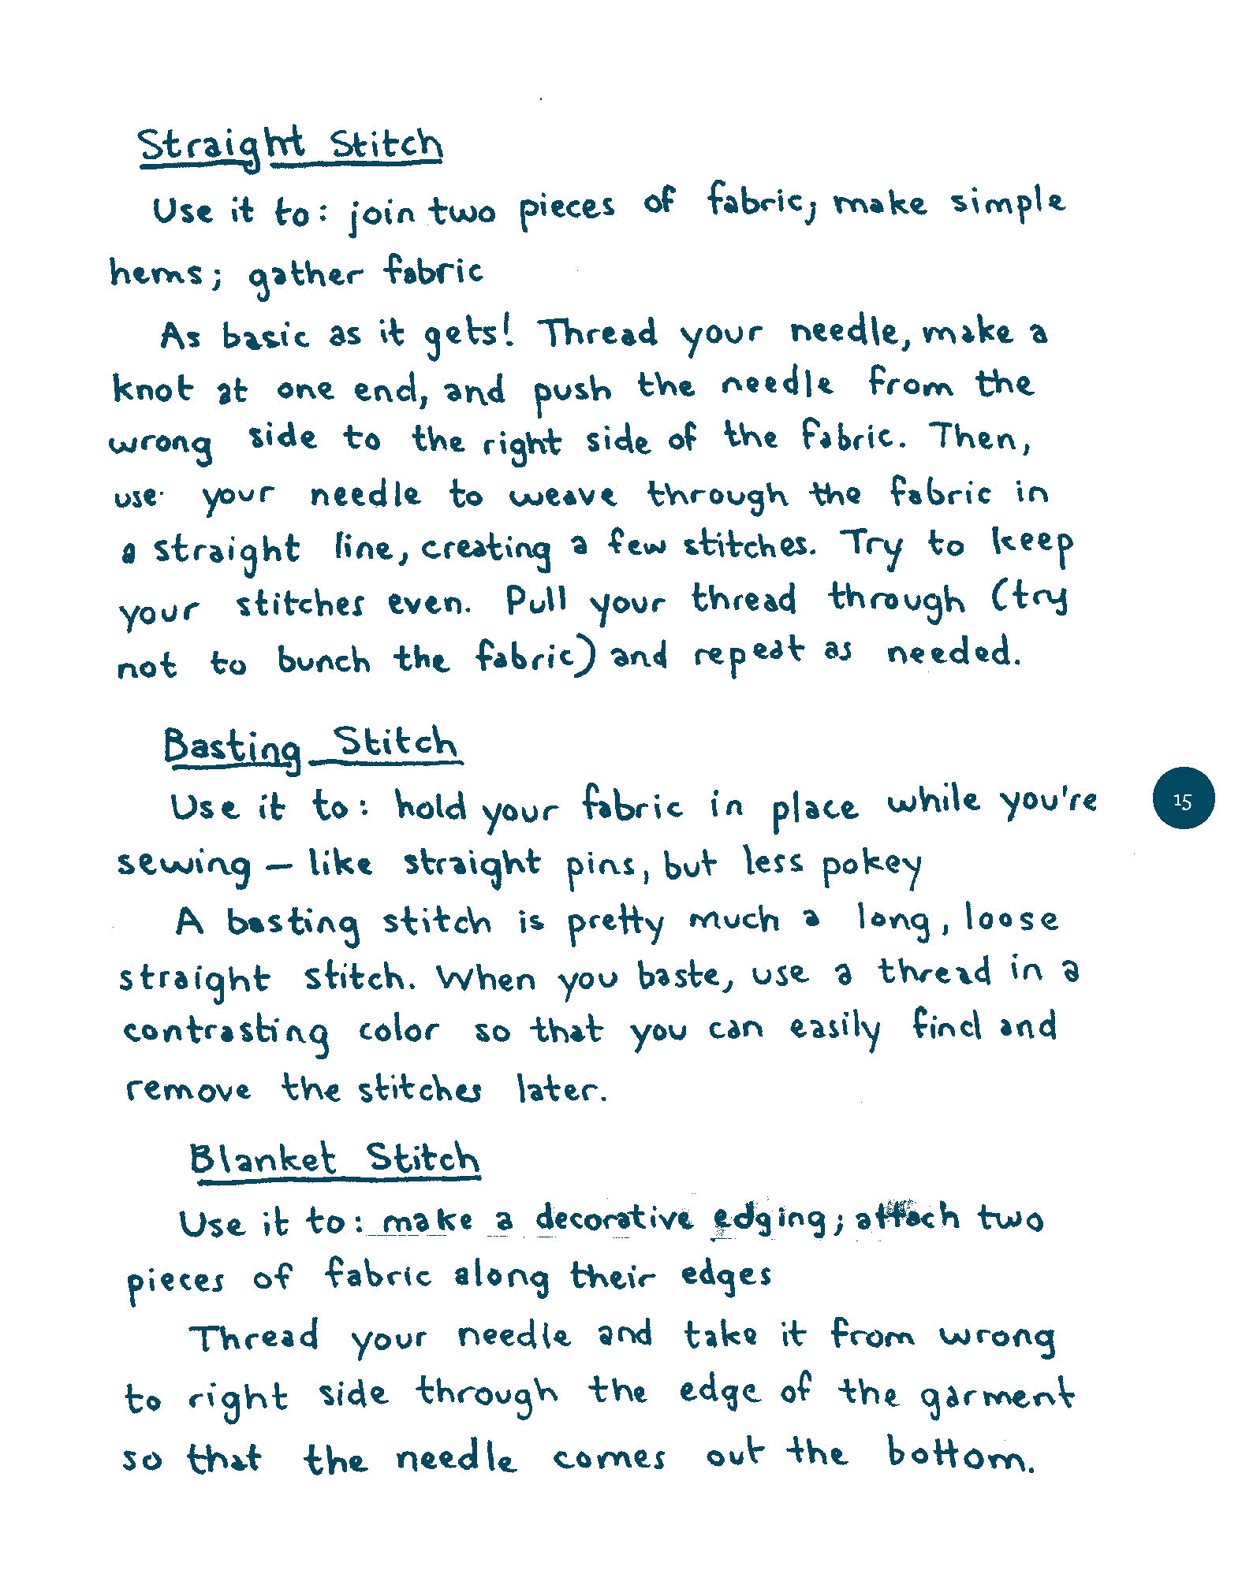 Straight Stitch
Use it to: join two pieces of fabric; make simple
hems; gather fabric
As basic as it gets! Thread your needle, make a
knot at one end, and push the needle from the
wrong side to the right side of the fabric. Then,
use your needle to weave through the fabric in
a straight line, creating a few stitches. Try to keep
your stitches even. Pull your thread through (try
not to bunch the fabric) and repeat as needed.
Basting Stitch
Use it to: hold your fabric in place while you're
sewing — like straight pins, but less pokey
15
A basting stitch is pretty much a long, loose
straight stitch. When you baste, use a thread in a
contrasting color so that you can easily find and
remove the stitches later.
Blanket Stitch
Use it to: make a decorative edging; attach two
pieces of fabric along their edges
Thread your needle and take it from wrong
to right side through the edge of the garment
so that the needle comes out the bottom.